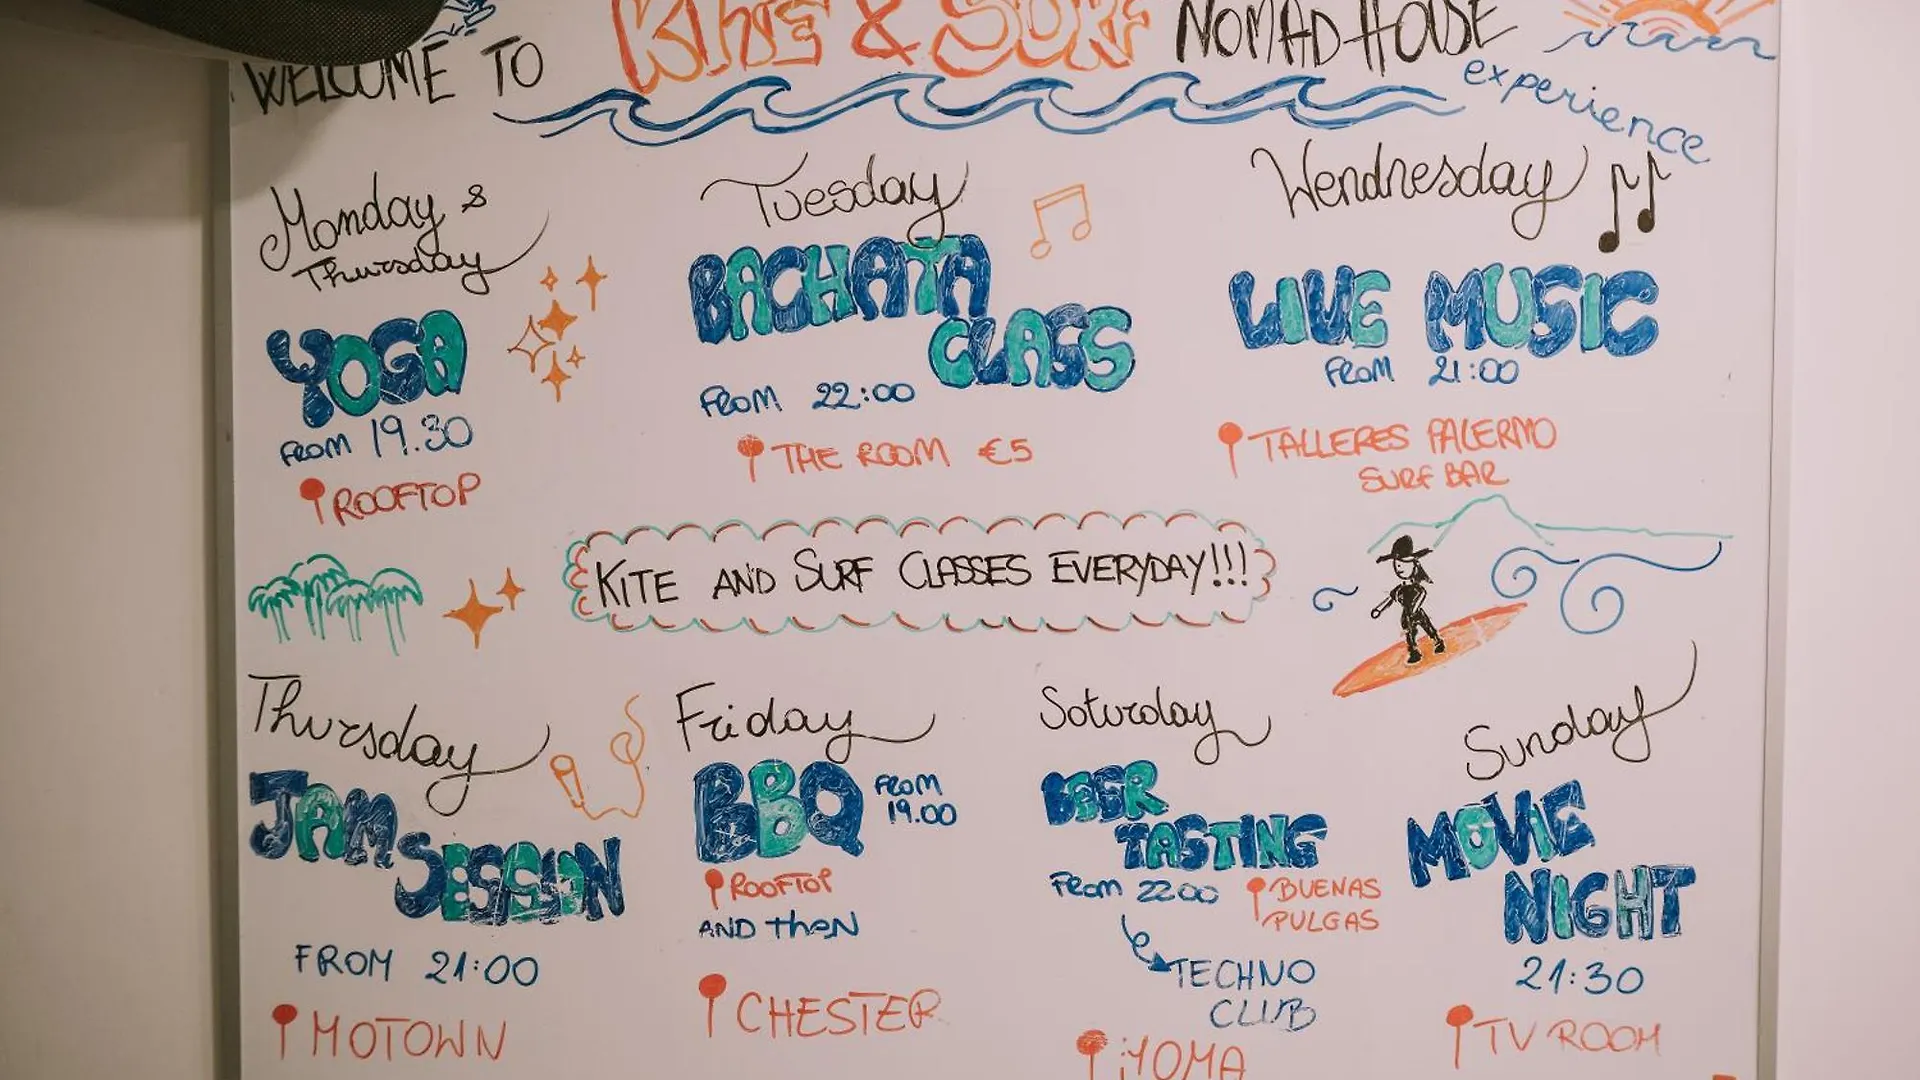 WELCOME TO KITE & SURF NOMAD HOUSE
experience
Monday &
Thursday
YOGA
FROM 19.30
ROOFTOP
Tuesday
BACHATA
CLASS
FROM 22:00
THE ROOM €5
Wendnesday
LIVE MUSIC
FROM 21:00
TALLERES PALERMO
SURF BAR
KITE AND SURF CLASSES EVERYDAY!!!
Thursday
JAM
SESSION
FROM 21:00
MOTOWN
Friday
BBQ
FROM
19.00
ROOFTOP
AND THEN
CHESTER
Saturday
BEER
TASTING
FROM 2200
BUENAS
PULGAS
TECHNO
CLUB
Sunday
MOVIE
NIGHT
21:30
TV ROOM